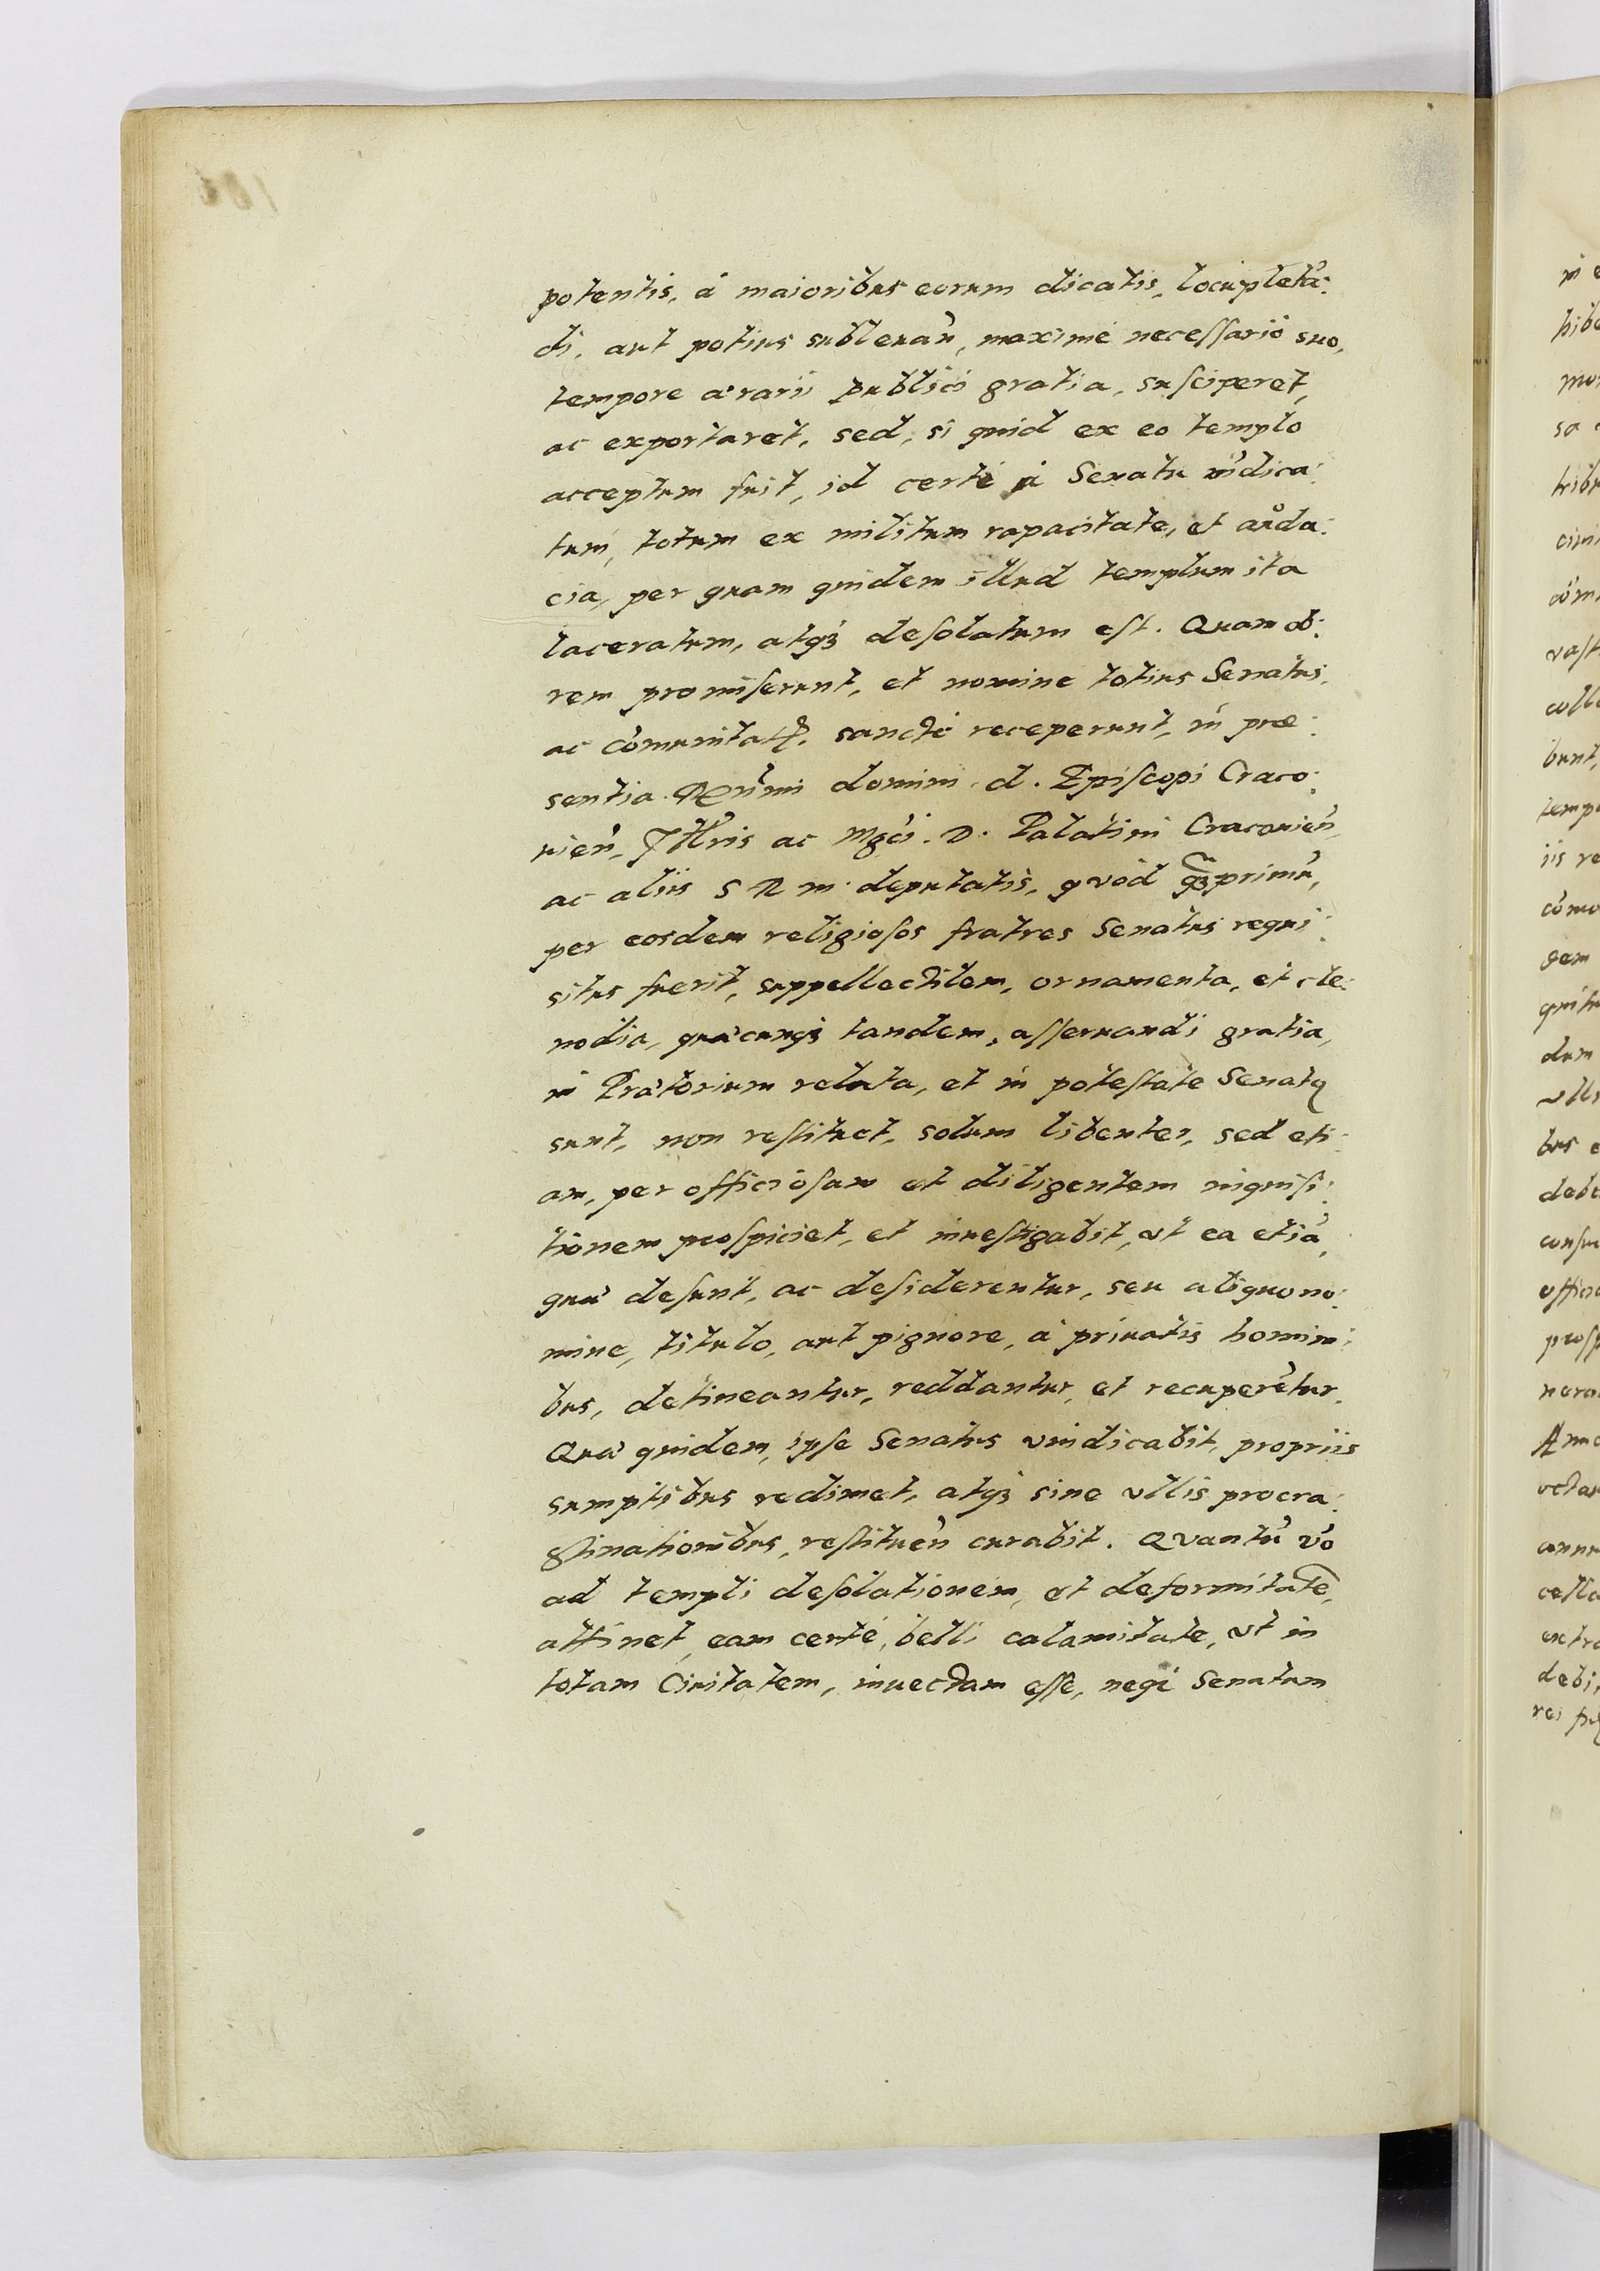 potentis, à maioribus eorum dicatis, locupletã:
di, aut potius subleuań, maximè necessariò suo,
tempore ærarii publici gratia, susciperet,
ac exportaret, sed, si quid ex eo templo
acceptum fuit, id certè à Senatu vĩdica:
tum, totum ex militum rapacitate, et auda:
cia, per quam quidem illud templum ita
laceratum, atqȝ desolatum est. Quam ob:
rem promiserunt, et nomine totius Senatus,
ac cõmunitatȩ, sanctè receperunt, in præ:
sentia Rẽũmi domini d. Episcopi Craco:
uień, Illtris ac Mgci. D. Palatini Cracouień,
ac aliis S R m. deputatis, quòd qȝprimũ,
per eosdem religiosos fratres Senatus requi:
situs fuerit, suppellectilem, ornamenta, et cle:
nodia, quæcunqȝ tandem, asseruandi gratia,
in Prætorium relata, et in potestate Senatꝰ
sunt, non restituet, solum libenter, sed eti:
am, per officiosam et diligentem inquisi:
tionem prospiciet, et inuestigabit, vt ea etiã,
quæ desunt, ac desiderentur, seu aliquo no:
mine, titulo, aut pignore, à priuatis homini:
bus, detineantur, reddantur, et recuperẽtur.
Quæ quidem, ipse Senatus vindicabit, propriis
sumptibus redimet, atqȝ sine vllis procra:
stinationibus, restitueń curabit. Quantũ vò
ad templi desolationem, et deformitatẽ,
attinet, eam certè, belli calamitate, vt in
totam Ciuitatem, inuectam esse, neqȝ Senatum